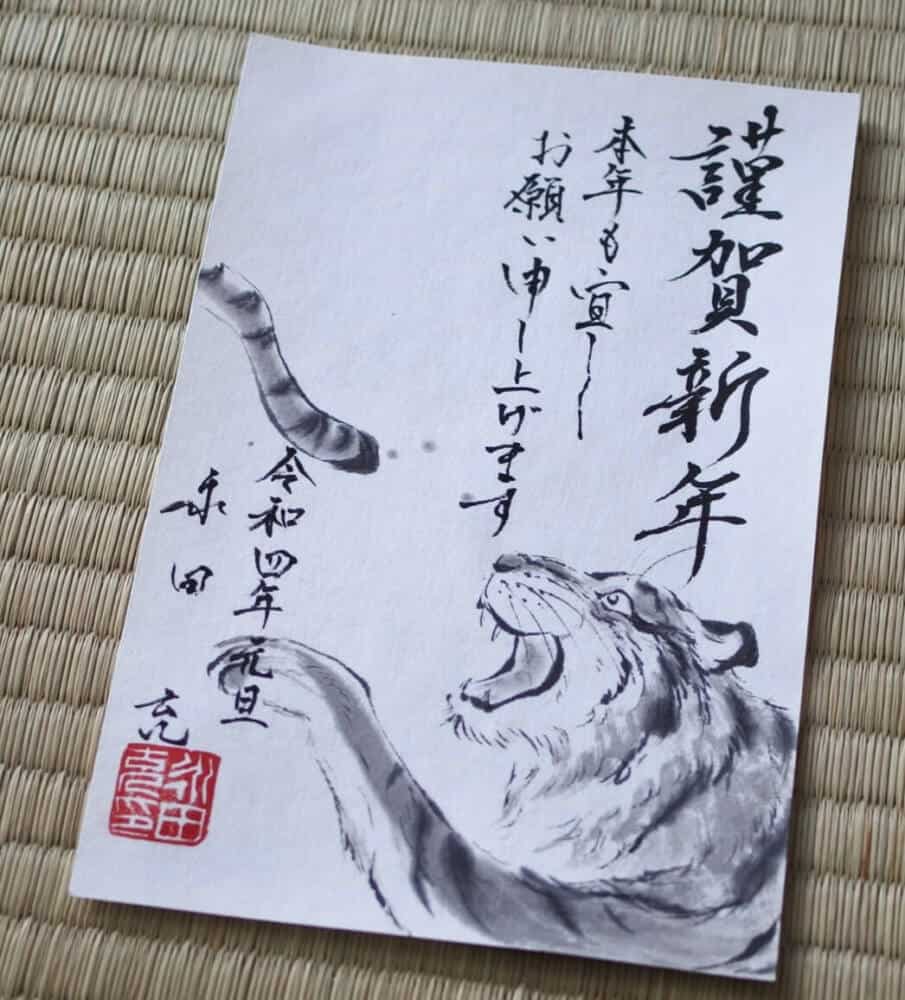 謹賀新年
本年も宜しく
お願い申し上げます
令和四年 元旦
永田
永田